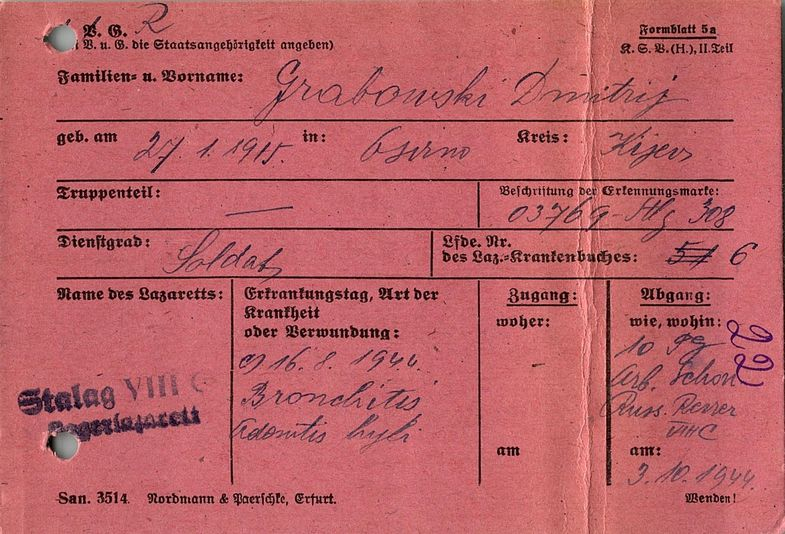 V. G. R
V. u. G. die Staatsangehörigkeit angeben)
Formblatt 5a
K. S. V. (H.), II. Teil
Familien- u. Vorname: Grabowski Dmitrij
geb. am 27. 1. 1915. in: Osirno Kreis: Kijew
Truppenteil: —
Beschriftung der Erkennungsmarke:
03769 308
Dienstgrad: Soldat
Lfde. Nr.
des Laz.-Krankenbuches: 51 6
Name des Lazaretts:
Stalag VIII C
Lagerlazarett
Erkrankungstag, Art der
Krankheit
oder Verwundung:
16. 8. 1944.
Bronchitis
hyli
Zugang:
woher:
am
Abgang:
wie, wohin:
22
10
Arb.
Russ.
VIIIC
am:
3. 10. 1944.
San. 3514. Nordmann & Paerschke, Erfurt.
Wenden!